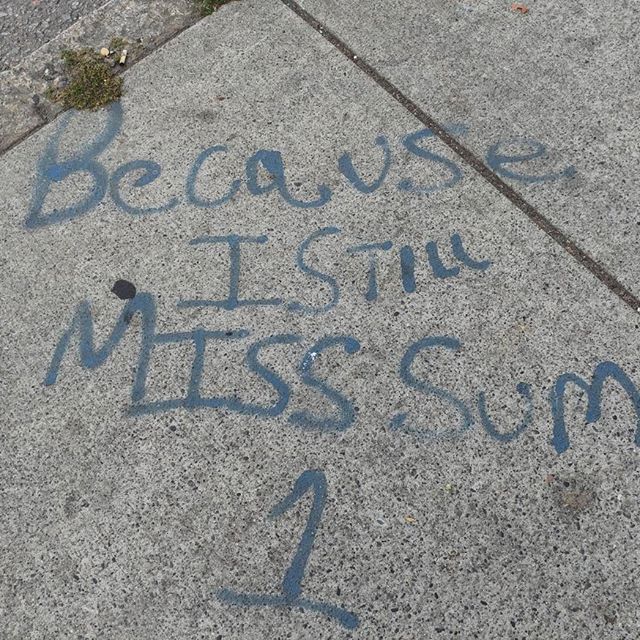 Because
I STill
MISS SUM
1